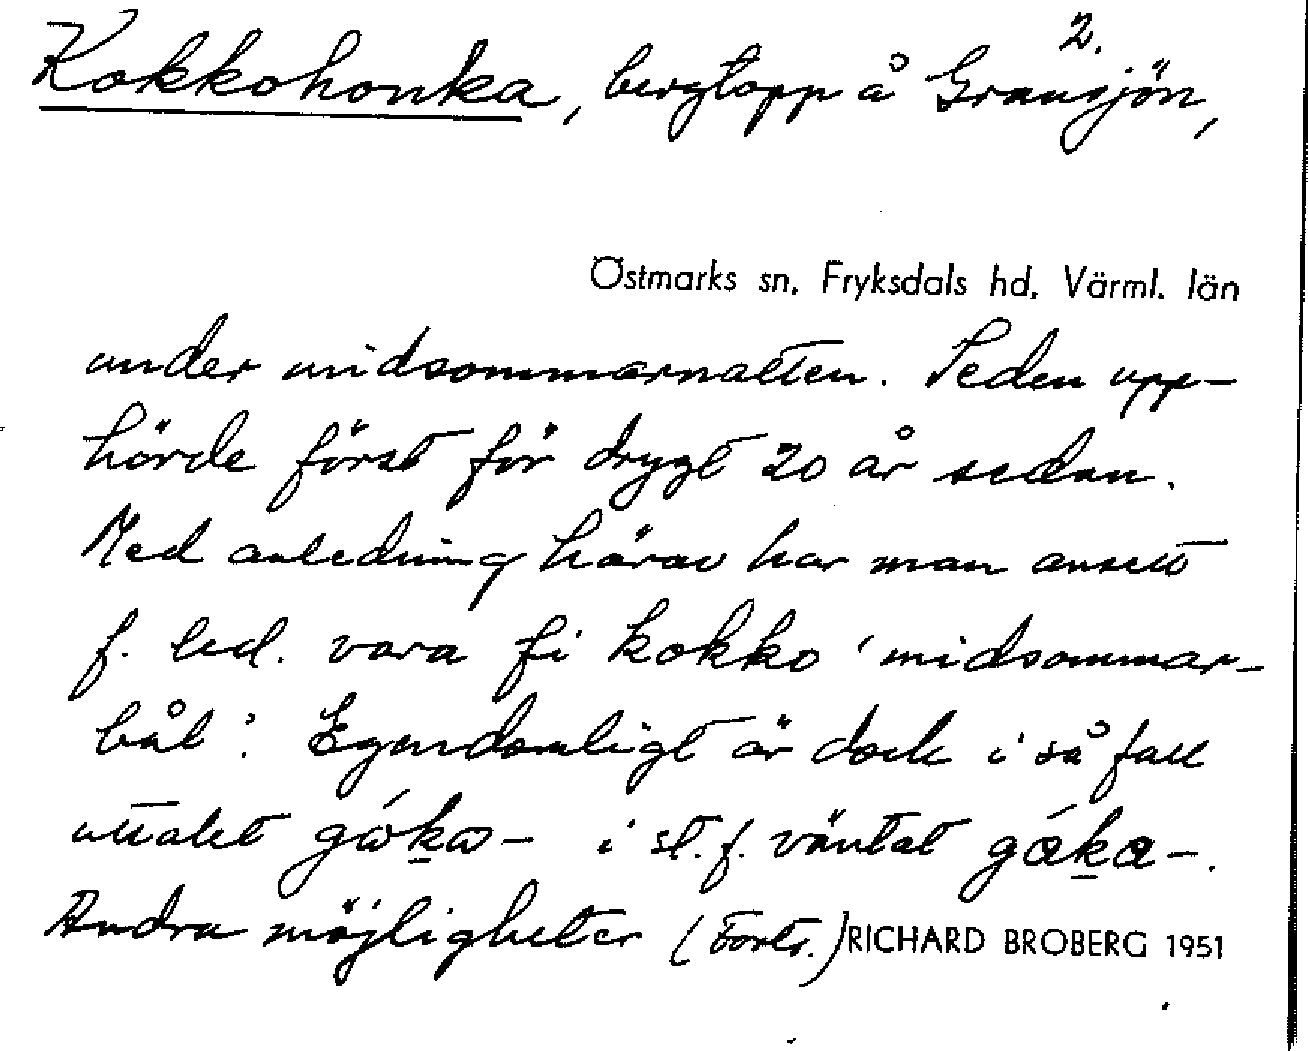 2.
Kokkohonka, bergtopp å Gransjön,
Östmarks sn. Fryksdals hd. Värml. län
under midsommarnatten. Seden upp-
hörde först för drygt 20 år sedan.
Med anledning härav har man ansett
f. led. vara fi kokko 'midsommar-
bål'. Egendomligt är dock i så fall
uttalet i st. f. väntat
Andra möjligheter (Forts.) RICHARD BROBERG 1951